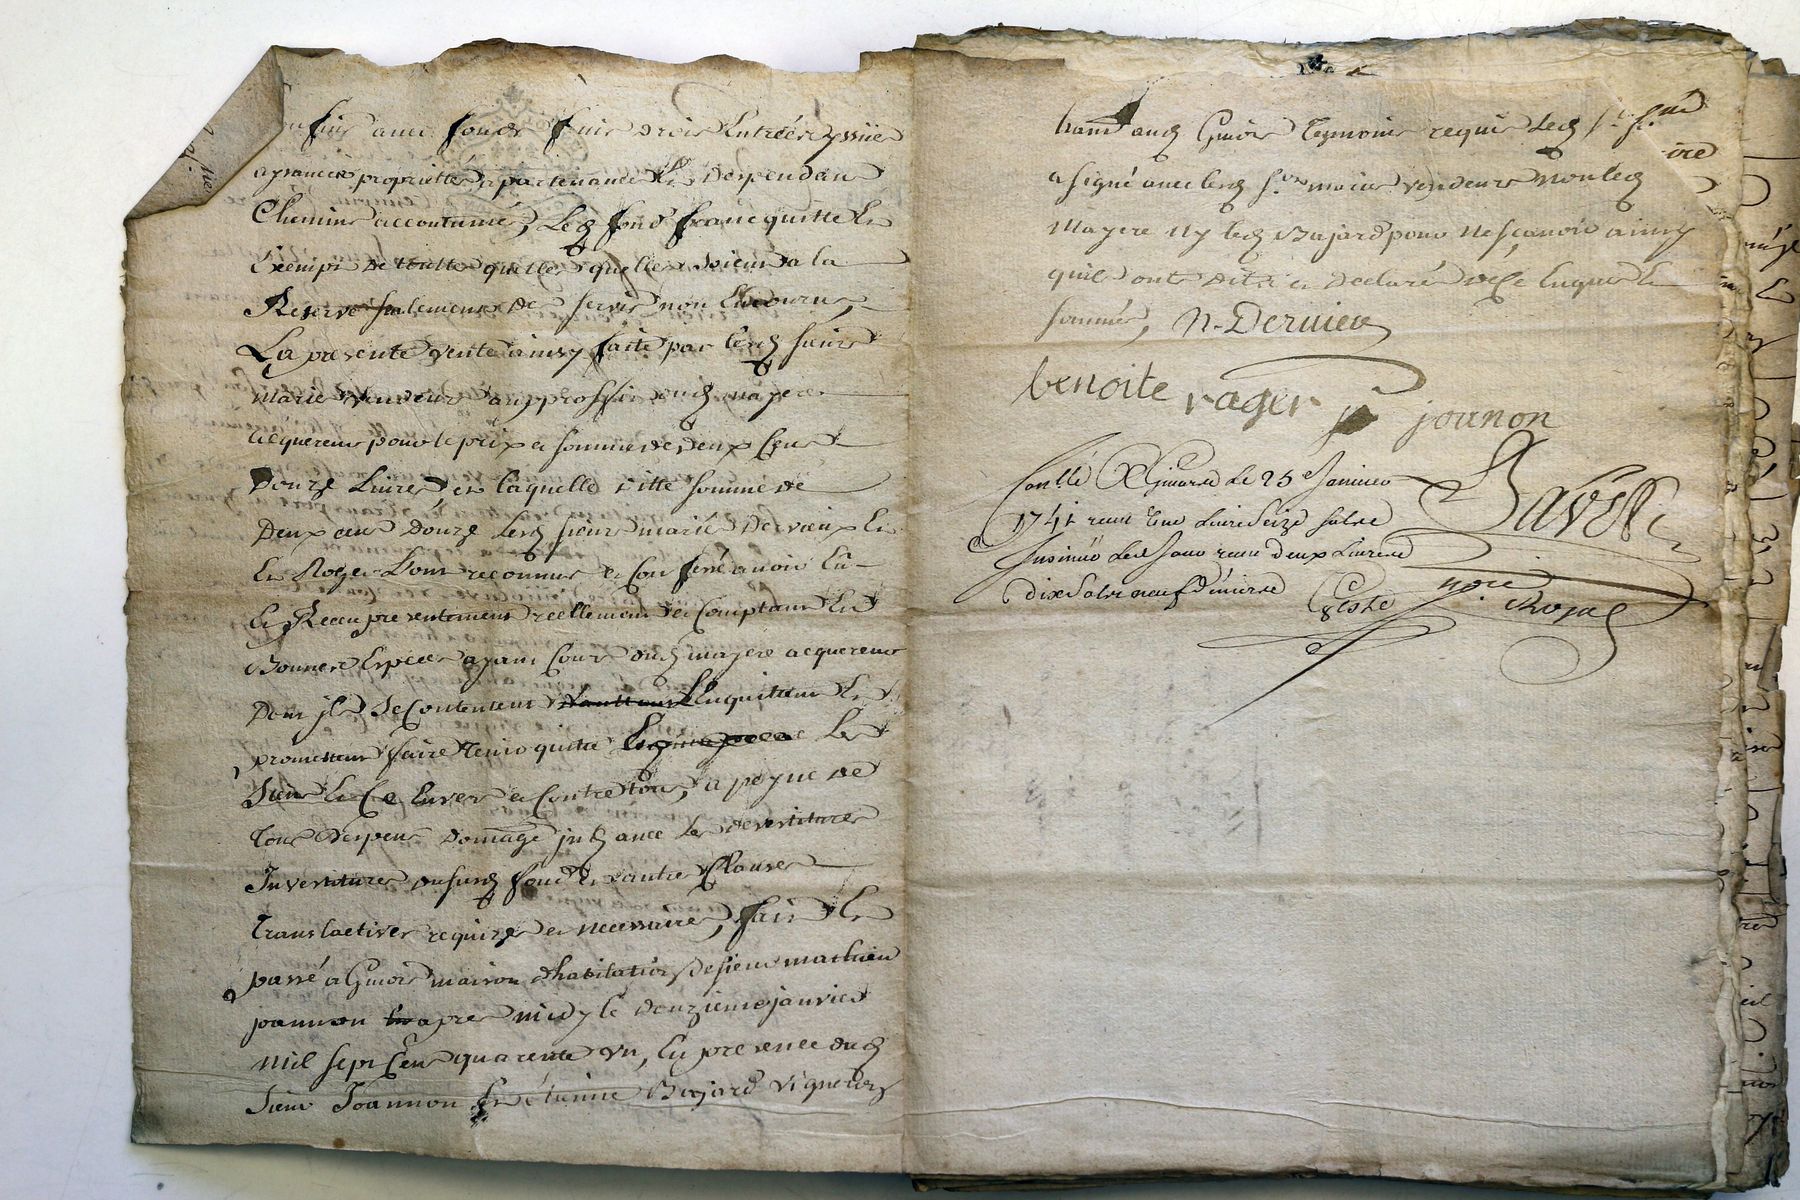 fond fruit droit entrées yssüe
aysances proprietté apartenances et dependan
Chemins accoutumés, Led fond franc quitte et
Exempt de toutte quelle quelle soient a la
Reserve seulement de servis non encourus,
La presente vente ainsy faitte par lesd sieurs
mariés vendeurs au proffit dud mayere
acquereur pour le prix et somme de deux Cent
Douze Livres, laquelle ditte somme de
Deux cent Douze lesd sieur mariés Dervieux et
Roger L'ont reconnus et Confessé avoir Eü
et Receu presentement reellement et Comptant En
Bonnes Especes ayant Cours dud mayere acquereur
Dont jls se Contentent L'enquittent Et
promettent faire tenir quitte Les
Siens Envers et Contre tous, a peyne de
tous Despens Domage jnts avec les devestitures
Investitures dusud fond et autres Clauses
translatives requises et necessaires, fait Et
passé a Givors maison d'habitation de sieur mathieu
joannon apres midy le Douzieme janvier
mil sept Cent quarente un, En presence dud
sieur Joannon Et étienne Bajard Vigneron
aud Givors temoins requis Led
a signé avec lesd mariés vendeurs non led
Mayere ny led Bajard pour ne sçavoir ainsy
quils ont Dit et Declaré de ce Enquis Et
sommés, N. Dervieu
benoite rager joanon
Conllé A Givors Le 25e Janvier
1741 receu une Livre Seize sols
Insinué Led Jour receu deux Livres
dix sols neuf deniers